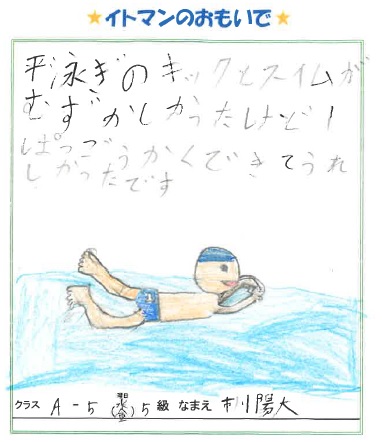 ★イトマンのおもいで★
平泳ぎのキックとスイムが
むずかしかったけど1
ぱつごうかくできてうれ
しかったです
クラス A-5 5級 なまえ 市川陽大